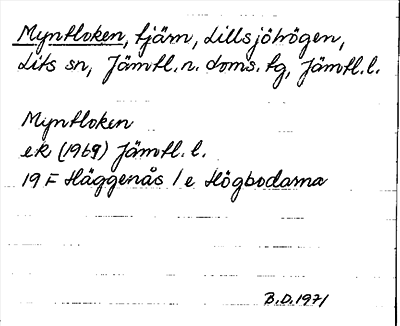 Myntloken, tjärn, Lillsjöhögen,
Lits sn, Jämtl. n. doms. tg, Jämtl. l.
Myntloken
ek (1969) Jämtl. l.
19 F Häggenås / e Högbodarna
B.D. 1971